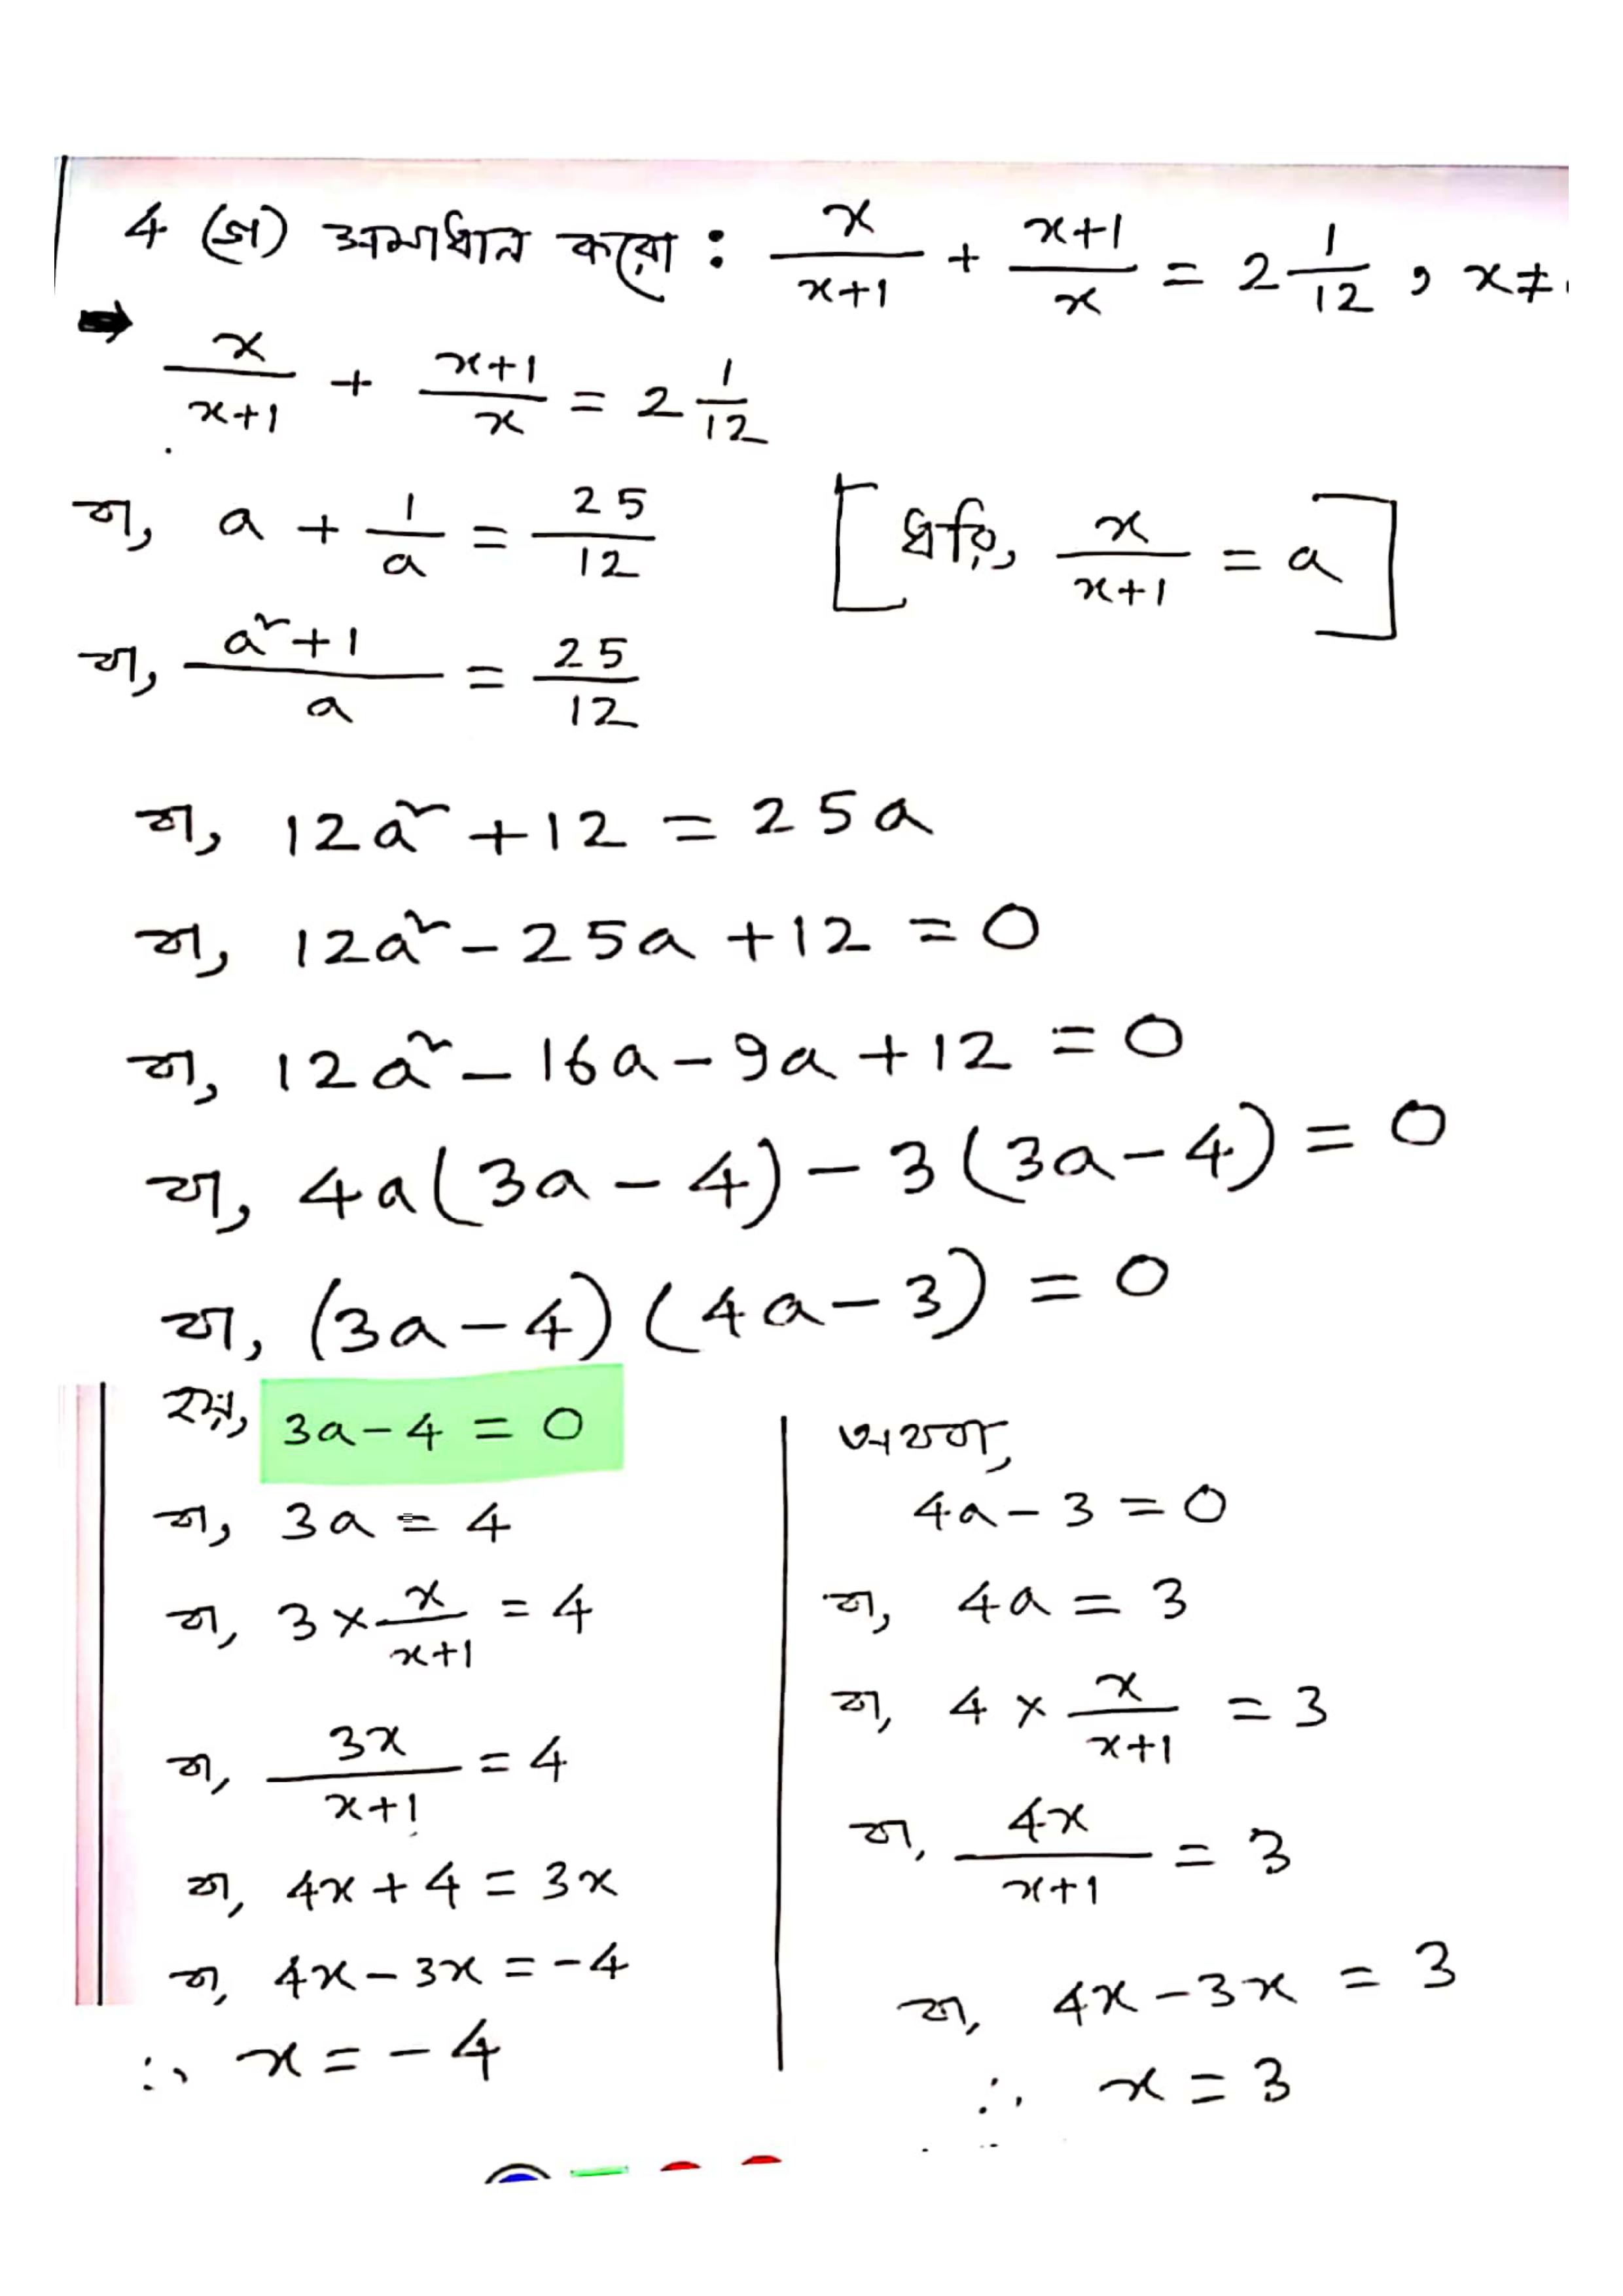 4 (জ) সমাধান করো : x/(x+1) + (x+1)/x = 2 1/12 , x ≠
⇒ x/(x+1) + (x+1)/x = 2 1/12
বা, a + 1/a = 25/12 [ধরি, x/(x+1) = a]
বা, (a²+1)/a = 25/12
বা, 12a² + 12 = 25a
বা, 12a² - 25a + 12 = 0
বা, 12a² - 16a - 9a + 12 = 0
বা, 4a(3a - 4) - 3(3a - 4) = 0
বা, (3a - 4)(4a - 3) = 0
হয়, 3a - 4 = 0
বা, 3a = 4
বা, 3 × x/(x+1) = 4
বা, 3x/(x+1) = 4
বা, 4x + 4 = 3x
বা, 4x - 3x = -4
∴ x = -4
অথবা,
4a - 3 = 0
বা, 4a = 3
বা, 4 × x/(x+1) = 3
বা, 4x/(x+1) = 3
বা, 4x - 3x = 3
∴ x = 3